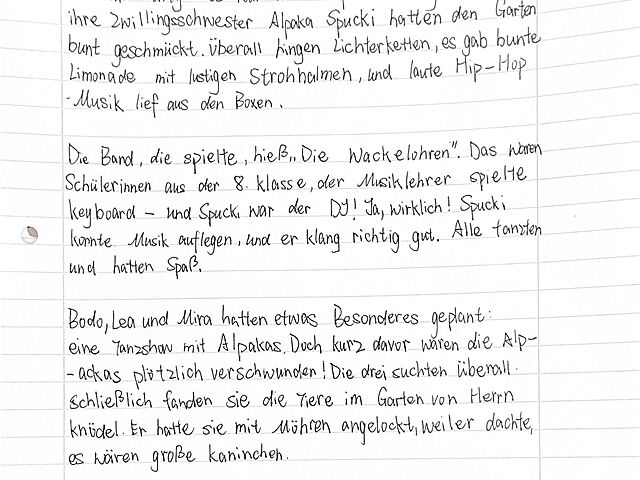 ihre Zwillingsschwester Alpaka Spucki hatten den Garten
bunt geschmückt. Überall hingen Lichterketten, es gab bunte
Limonade mit lustigen Strohhalmen, und laute Hip-Hop
-Musik lief aus den Boxen.
Die Band, die spielte, hieß „Die Wackelohren". Das waren
Schülerinnen aus der 8. Klasse, der Musiklehrer spielte
keyboard – und Spucki war der DJ! Ja, wirklich! Spucki
konnte Musik auflegen, und er klang richtig gut. Alle tanzten
und hatten Spaß.
Bodo, Lea und Mira hatten etwas Besonderes geplant:
eine Tanzshow mit Alpakas. Doch kurz davor waren die Alp-
-ackas plötzlich verschwunden! Die drei suchten überall.
Schließlich fanden sie die Tiere im Garten von Herrn
knödel. Er hatte sie mit Möhren angelockt, weil er dachte,
es wären große kaninchen.